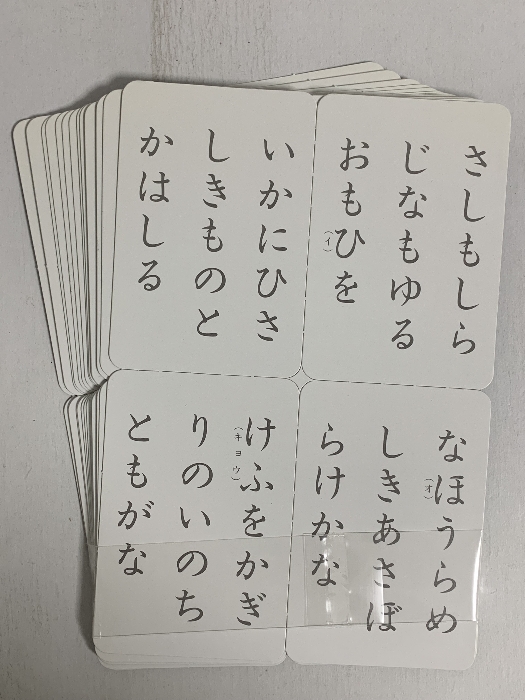 さしもしら
じなもゆる
おもひを
(イ)
いかにひさ
しきものと
かはしる
なほうらめ
(オ)
しきあさぼ
らけかな
けふをかぎ
(キヨウ)
りのいのち
ともがな